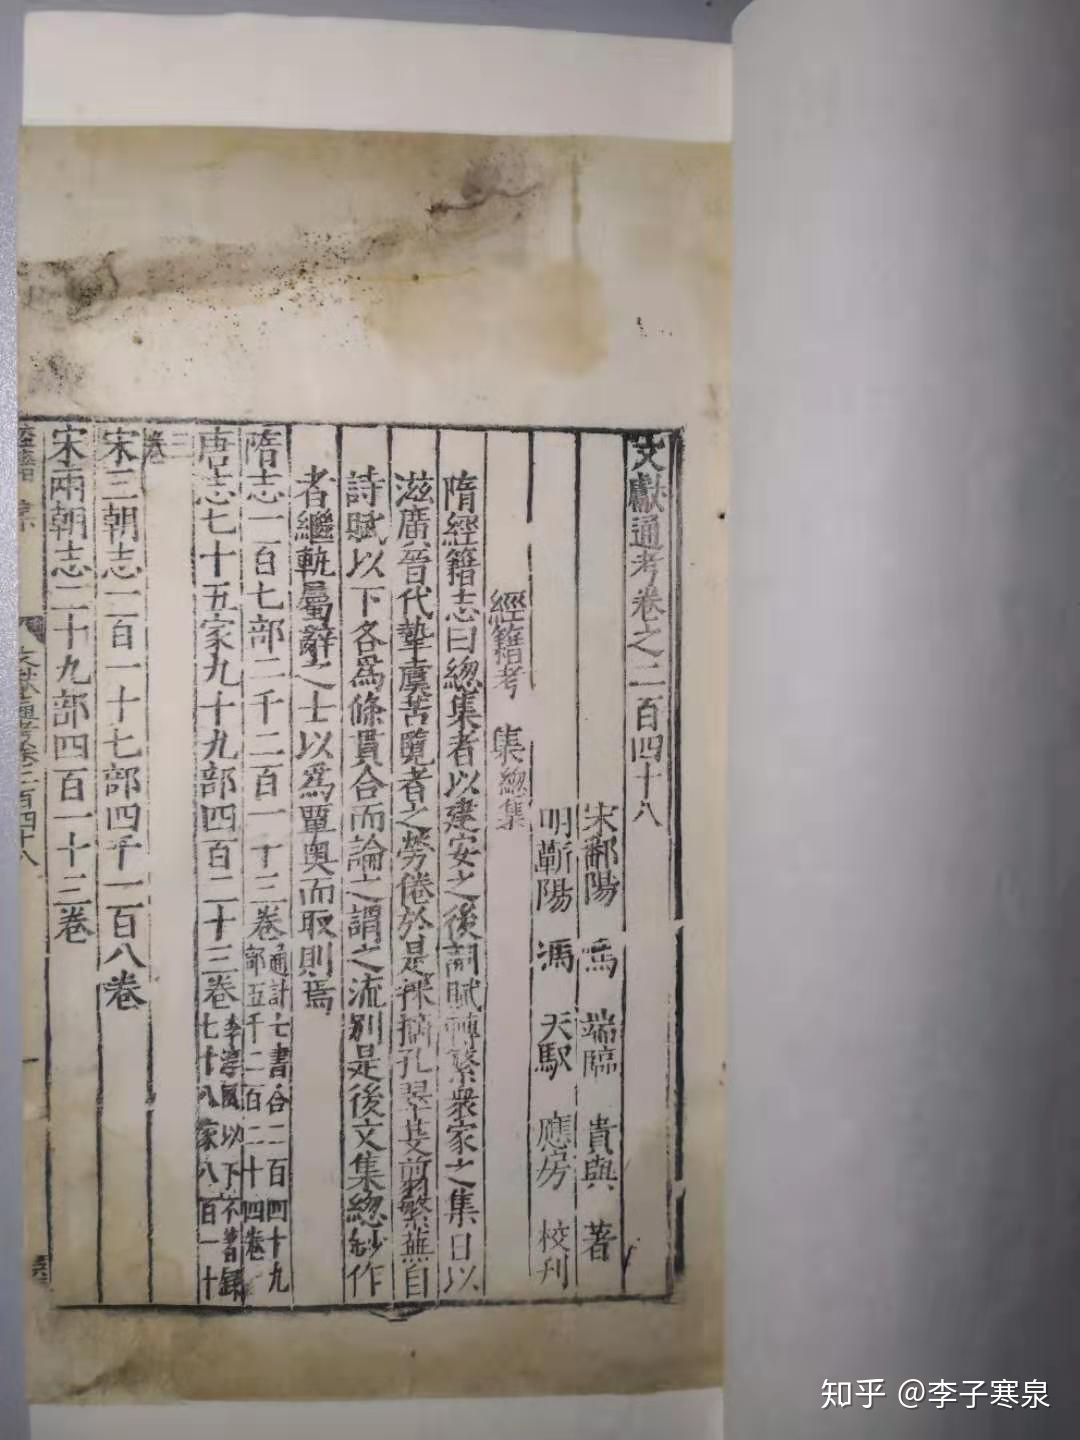 文獻通考卷之二百四十八
宋鄱陽 馬 端臨 貴與 著
明蘄陽 馮 天馭 應房 校刋
經籍考 集總集
隋經籍志曰總集者以建安之後詞賦轉繁衆家之集日以
滋廣晉代摯虞苦覽者之勞倦於是採摘孔翠芟剪繁蕪自
詩賦以下各爲條貫合而論之謂之流别是後文集總鈔作
者繼軌屬辭之士以爲覃奥而取則焉
隋志一百七部二千二百一十三卷通計七書合二百四十九部五千二百二十四卷
唐志七十五家九十九部四百二十三卷李淳風以下不著録七十八家八百一十
三卷
宋三朝志二百一十七部四千一百八卷
宋兩朝志二十九部四百一十三卷
文獻通考卷二百四十八
一
知乎 @李子寒泉